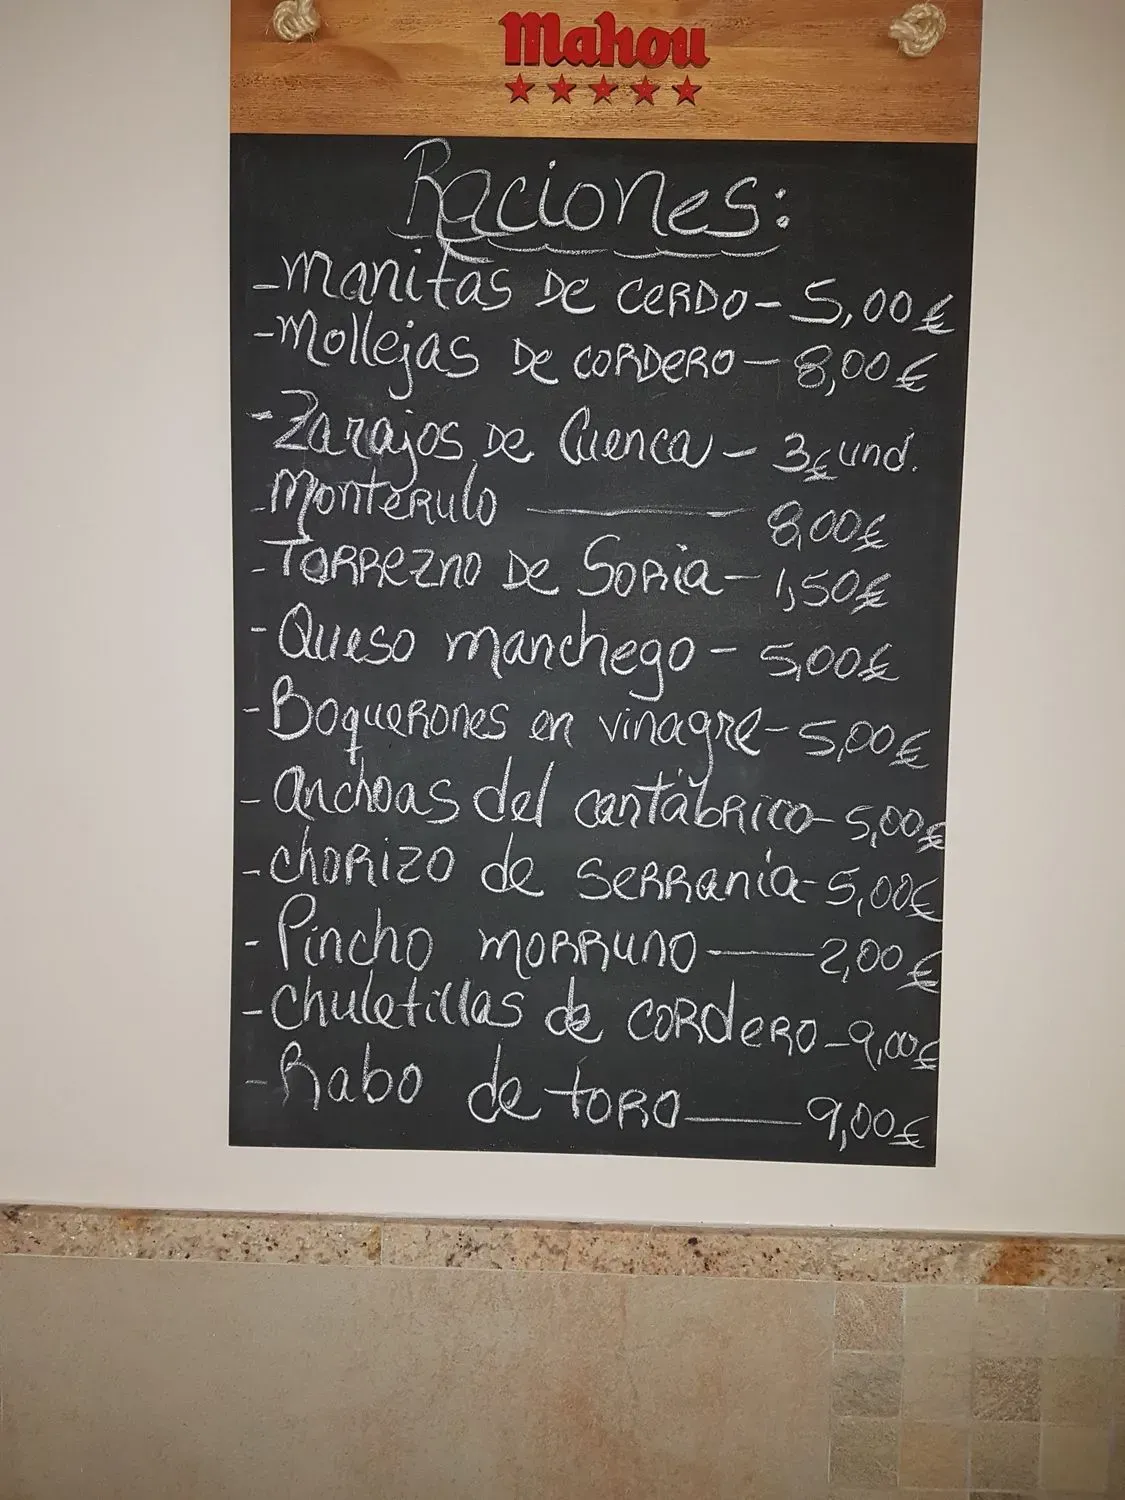 Mahou
Raciones:
- manitas DE CERDO - 5,00€
- Mollejas DE CORDERO - 8,00€
- Zarajos DE Cuenca - 3€ und.
- MONTERULO — 8,00€
- TORREZNO DE SORIA - 1,50€
- Queso manchego - 5,00€
- Boquerones en vinagre - 5,00€
- anchoas del cantábrico - 5,00€
- chorizo de serranía - 5,00€
- Pincho morruno — 2,00€
- chuletillas de cordero - 9,00€
- Rabo de toro — 9,00€